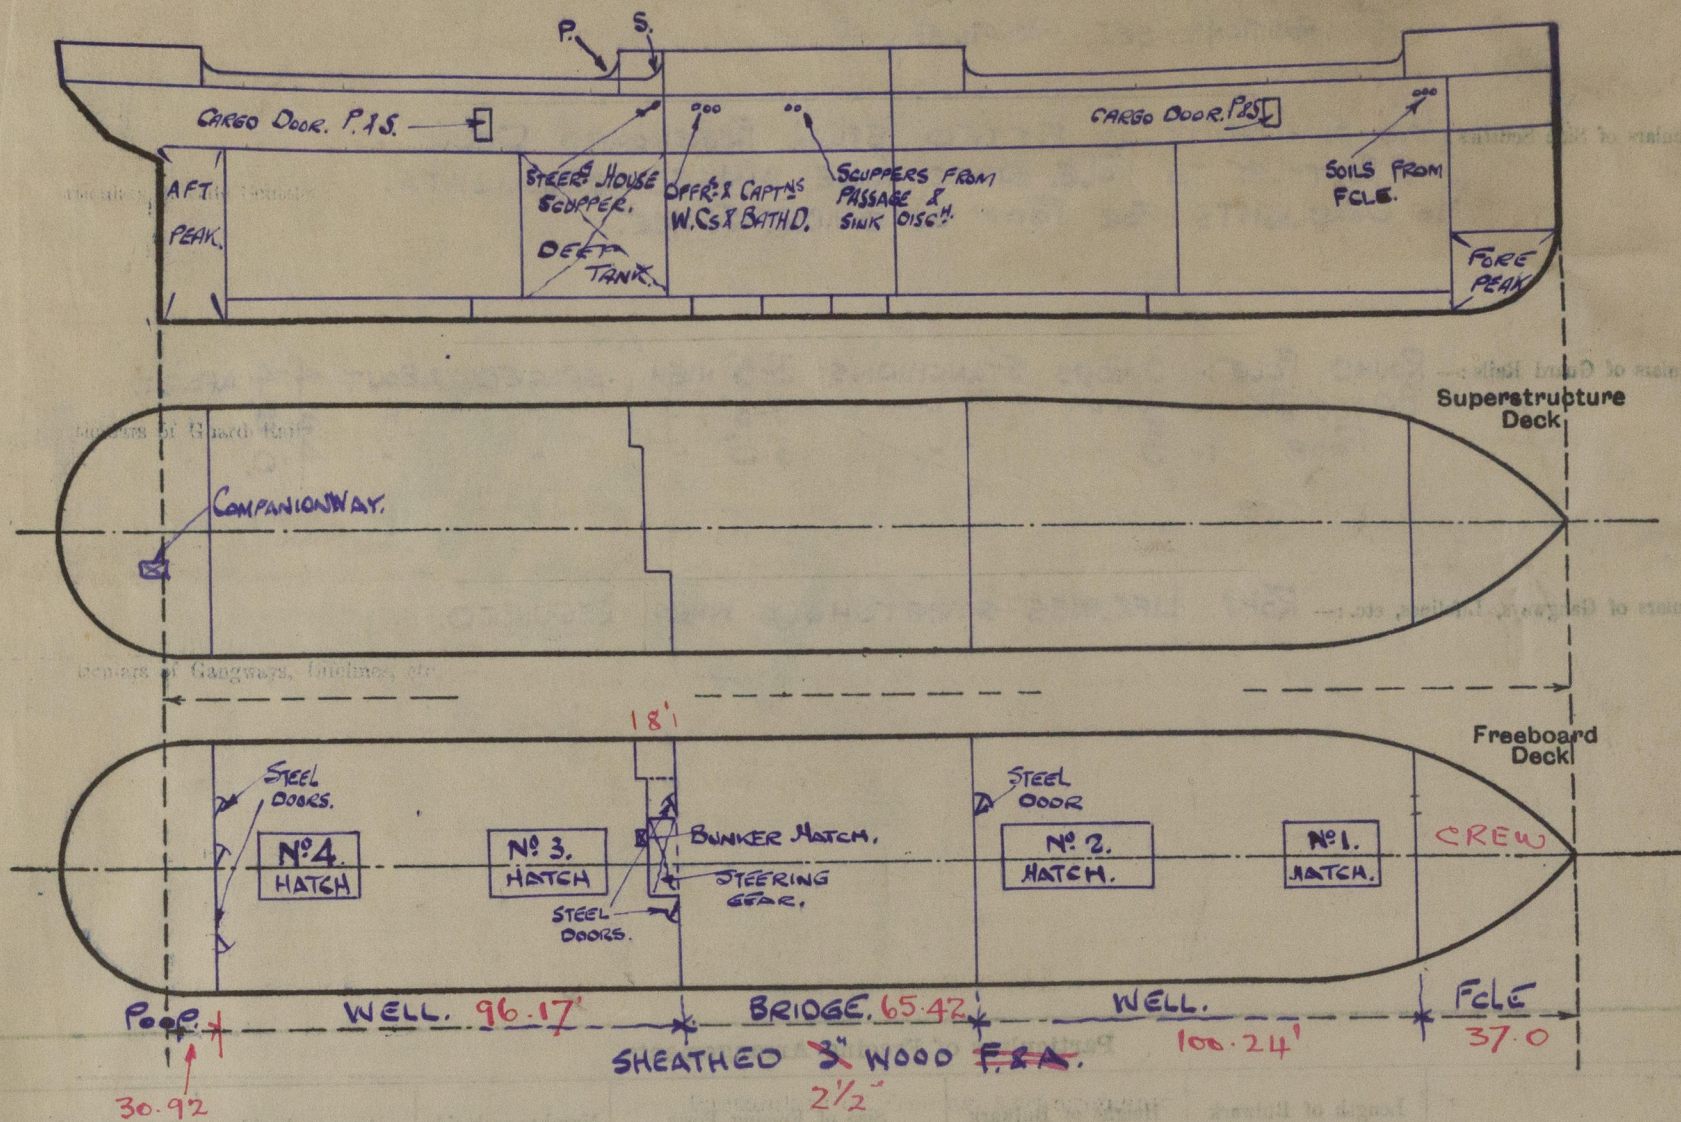 P.
S.
CARGO DOOR. P.&S.
CARGO DOOR. P&S.
AFT
PEAK.
STEERG HOUSE
SCUPPER.
DEEP
TANK.
OFFRS & CAPTNS
W.Cs & BATH D.
SCUPPERS FROM
PASSAGE &
SINK DISCH.
SOILS FROM
FCLE.
FORE
PEAK
Superstructure
Deck
COMPANIONWAY.
18'
Freeboard
Deck
STEEL
DOORS.
STEEL
DOOR
No 4.
HATCH
No 3.
HATCH
BUNKER HATCH.
STEERING
GEAR.
STEEL
DOORS.
No 2.
HATCH.
No 1.
HATCH.
CREW
POOP.
WELL. 96.17'
BRIDGE. 65.42
WELL.
100.24'
FCLE
37.0
30.92
SHEATHED 3" WOOD F.&A.
2½"